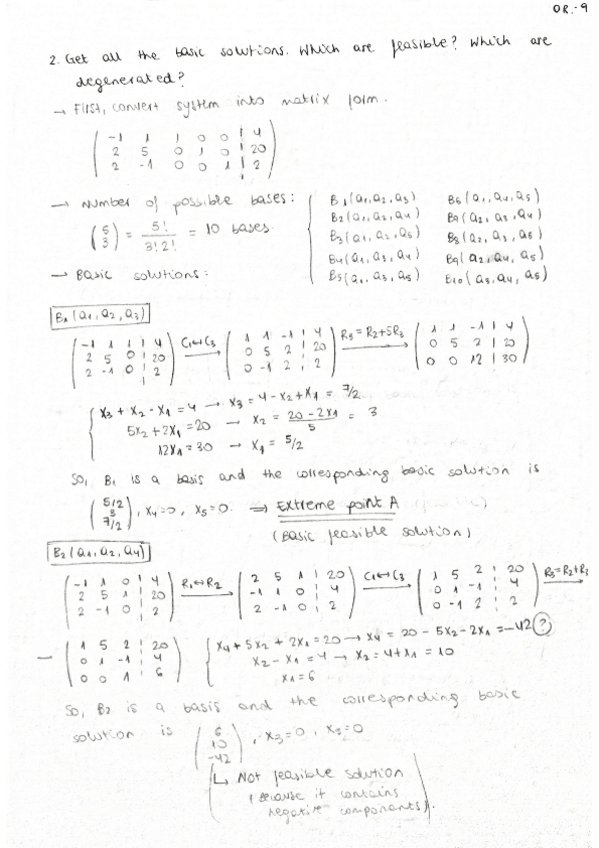 OR.-9
2. Get all the basic solutions. Which are feasible? Which are
degenerated?
→ First, convert system into matrix form.
-1 1 1 0 0 | 4
2 5 0 1 0 | 20
2 -1 0 0 1 | 2
→ Number of possible bases:
(5 3) = 5! / 3! 2! = 10 bases.
B1 (a1, a2, a3) B6 (a1, a4, a5)
B2 (a1, a2, a4) B7 (a2, a3, a4)
B3 (a1, a2, a5) B8 (a2, a3, a5)
B4 (a1, a3, a4) B9 (a2, a4, a5)
B5 (a1, a3, a5) B10 (a3, a4, a5)
→ Basic solutions:
B1 (a1, a2, a3)
-1 1 1 | 4 C1↔C3 1 1 -1 | 4 R3=R2+5R3 1 1 -1 | 4
2 5 0 | 20 0 5 2 | 20 0 5 2 | 20
2 -1 0 | 2 0 -1 2 | 2 0 0 12 | 30
x3 + x2 - x1 = 4 → x3 = 4 - x2 + x1 = 7/2
5x2 + 2x1 = 20 → x2 = 20 - 2x1 / 5 = 3
12x1 = 30 → x1 = 5/2
So, B1 is a basis and the corresponding basic solution is
(5/2 3 7/2), x4=0, x5=0. ⇒ Extreme point A
(Basic feasible solution)
B2 (a1, a2, a4)
-1 1 0 | 4 R1↔R2 2 5 1 | 20 C1↔C3 1 5 2 | 20 R3=R2+R3
2 5 1 | 20 -1 1 0 | 4 0 1 -1 | 4
2 -1 0 | 2 2 -1 0 | 2 0 -1 2 | 2
1 5 2 | 20 x4 + 5x2 + 2x1 = 20 → x4 = 20 - 5x2 - 2x1 = -42 ?
0 1 -1 | 4 x2 - x1 = 4 → x2 = 4 + x1 = 10
0 0 1 | 6 x1 = 6
So, B2 is a basis and the corresponding basic
solution is (6 10 -42), x3=0, x5=0
↳ Not feasible solution
(because it contains
negative components).